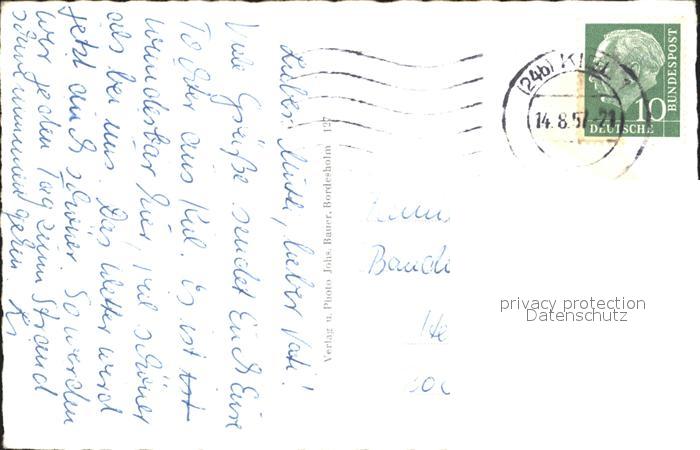 Liebe Mutti, lieber Vati!
Viele Grüße sendet Euch Eure
Tochter aus Kiel. Es ist
wunderbar hier, viel schöner
als bei uns. Das Wetter wird
jetzt auch schöner. So werden
wir jeden Tag zum Strand
schwimmen gehen
Verlag u. Photo Johs. Bauer, Bordesholm
(24b) KIEL
14.8.57-21
10
DEUTSCHE
BUNDESPOST
privacy protection
Datenschutz